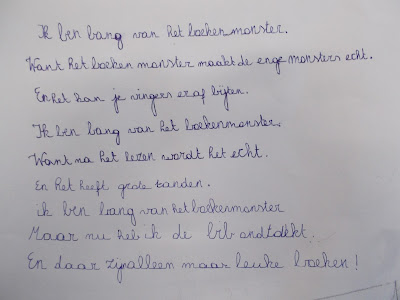 Ik ben bang van het boekenmonster.
Want het boeken monster maakt de enge monsters echt.
En het kan je vingers eraf bijten.
Ik ben bang van het boekenmonster.
Want na het lezen wordt het echt.
En het heeft grote tanden.
ik ben bang van het boekenmonster
Maar nu heb ik de bib ontdekt.
En daar zijn alleen maar leuke boeken!